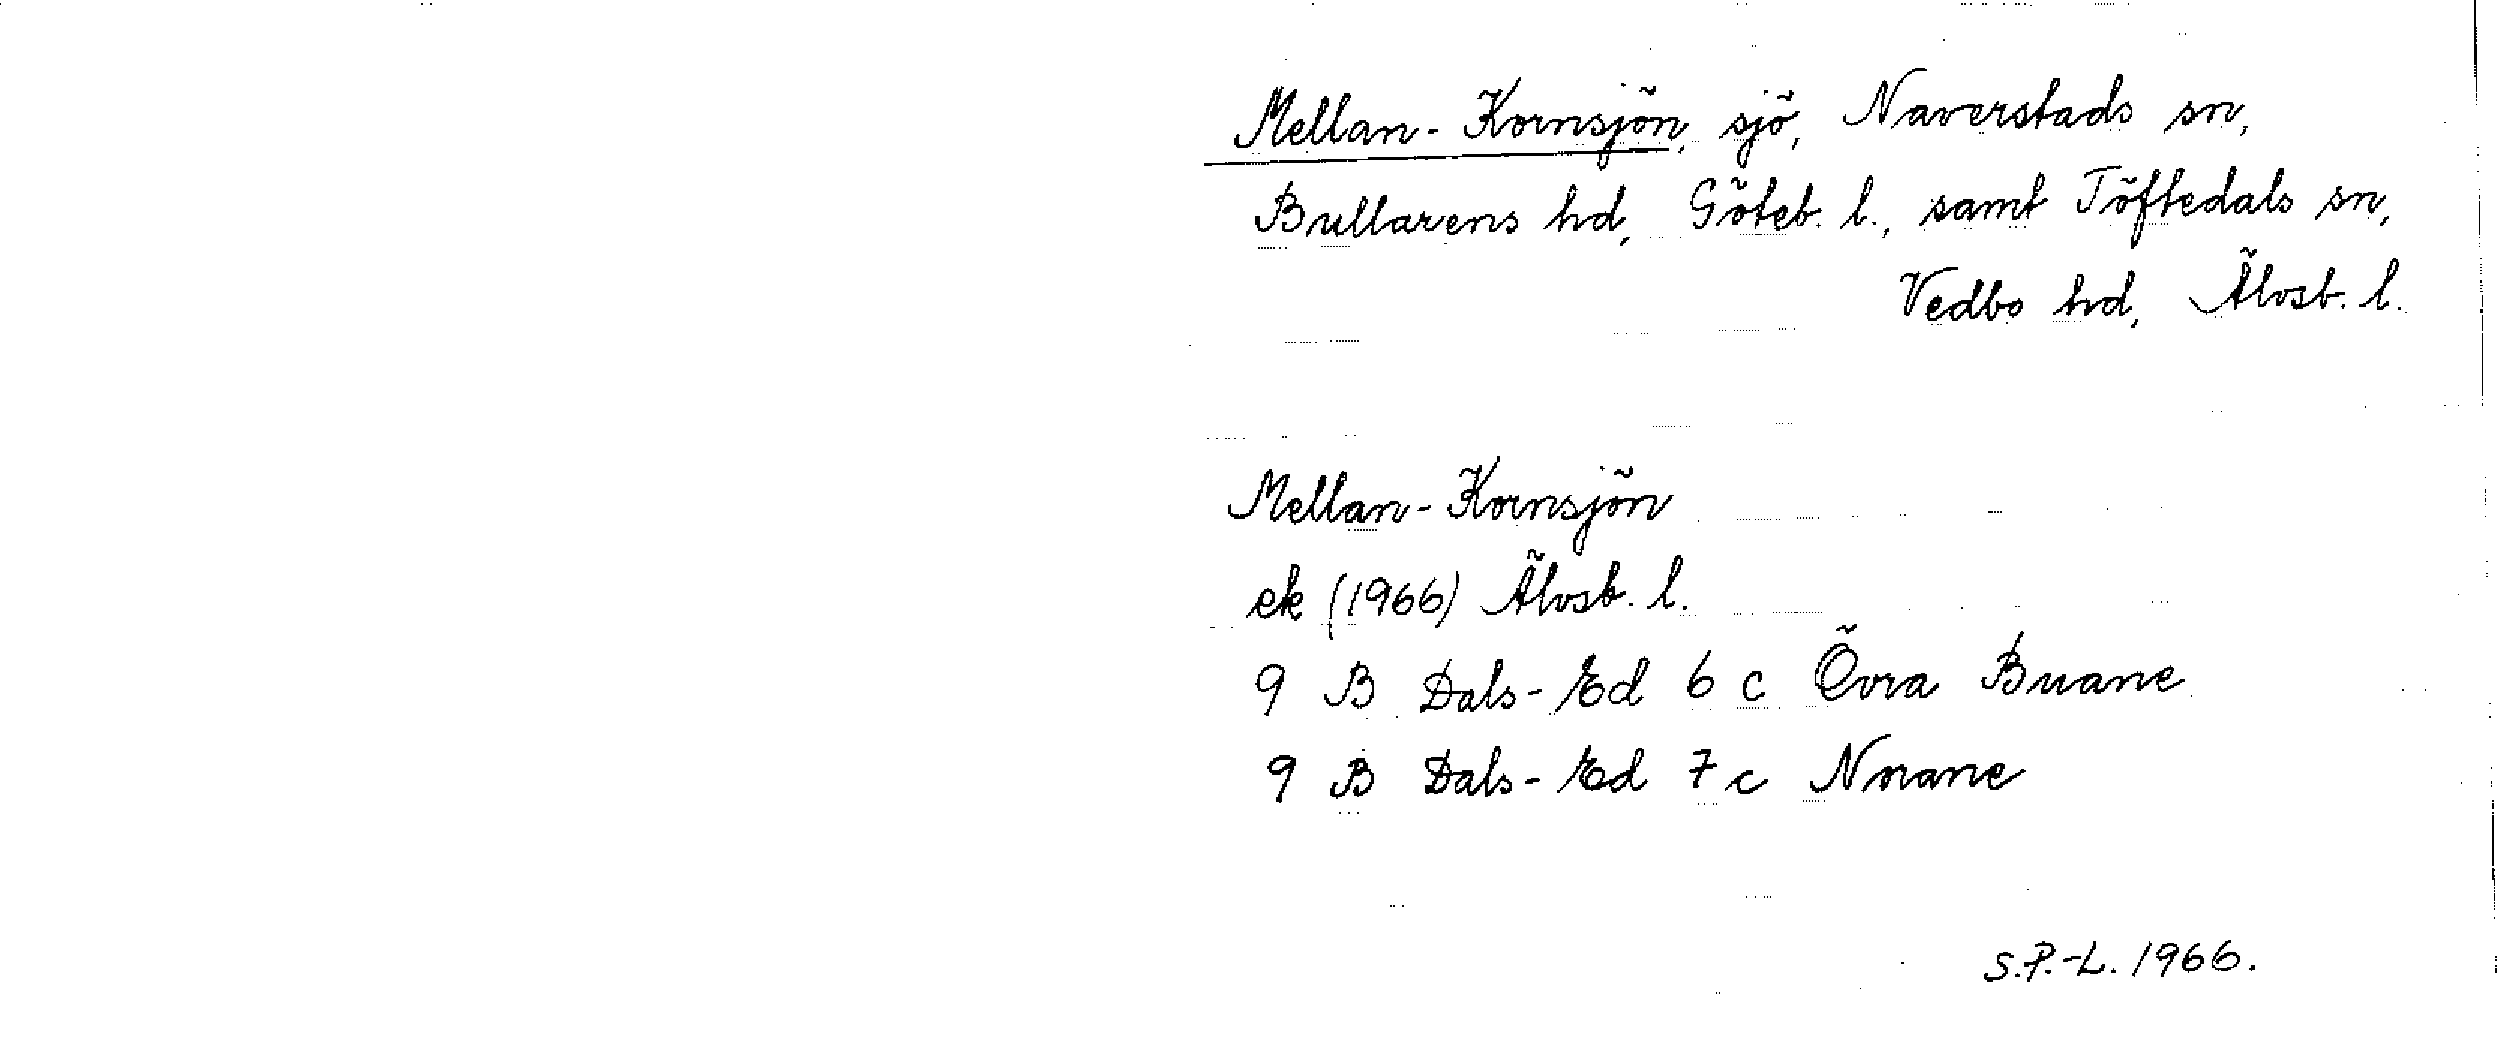 Mellan-Kornsjön, sjö, Naverstads sn,
Bullarens hd, Göteb. l., samt Töftedals sn,
Vedbo hd, Älvsb. l.
Mellan-Kornsjön
ek (1966) Älvsb. l.
9 B Dals-Ed 6 c Övra Buane
9 B Dals-Ed 7 c Nnane
S.P.-L. 1966.